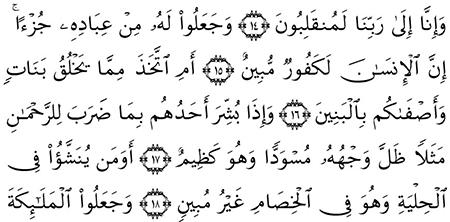 وَإِنَّآ إِلَىٰ رَبِّنَا لَمُنقَلِبُونَ ﴿١٤﴾ وَجَعَلُوا۟ لَهُۥ مِنْ عِبَادِهِۦ جُزْءًا ۚ
إِنَّ ٱلْإِنسَـٰنَ لَكَفُورٌ مُّبِينٌ ﴿١٥﴾ أَمِ ٱتَّخَذَ مِمَّا يَخْلُقُ بَنَاتٍ
وَأَصْفَىٰكُم بِٱلْبَنِينَ ﴿١٦﴾ وَإِذَا بُشِّرَ أَحَدُهُم بِمَا ضَرَبَ لِلرَّحْمَـٰنِ
مَثَلًا ظَلَّ وَجْهُهُۥ مُسْوَدًّا وَهُوَ كَظِيمٌ ﴿١٧﴾ أَوَمَن يُنَشَّؤُا۟ فِى
ٱلْحِلْيَةِ وَهُوَ فِى ٱلْخِصَامِ غَيْرُ مُبِينٍ ﴿١٨﴾ وَجَعَلُوا۟ ٱلْمَلَـٰٓئِكَةَ